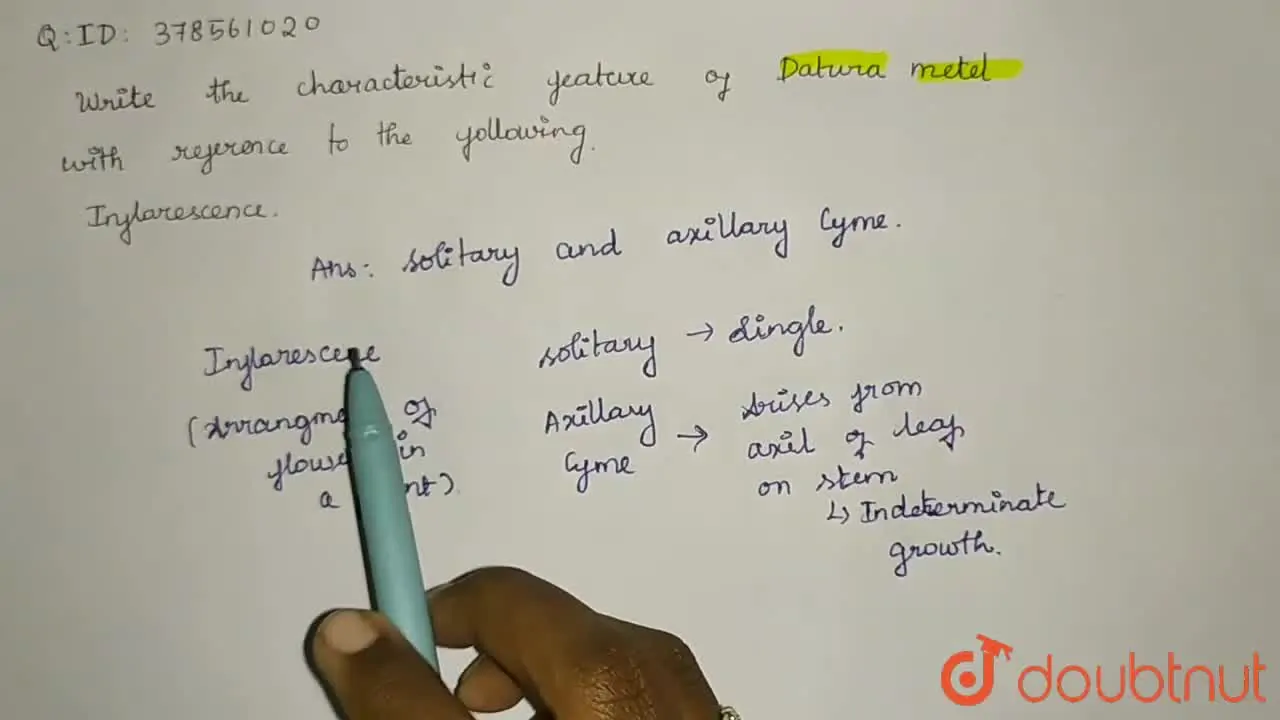 Q:ID: 378561020
Write the characteristic feature of Datura metel
with reference to the following.
Inflorescence.
Ans: solitary and axillary Cyme.
Inflorescence
(Arrangme of
flowe in
a nt).
solitary → Single.
Axillary
Cyme → Arises from
axil of leaf
on stem
↳ Indeterminate
growth.
doubtnut